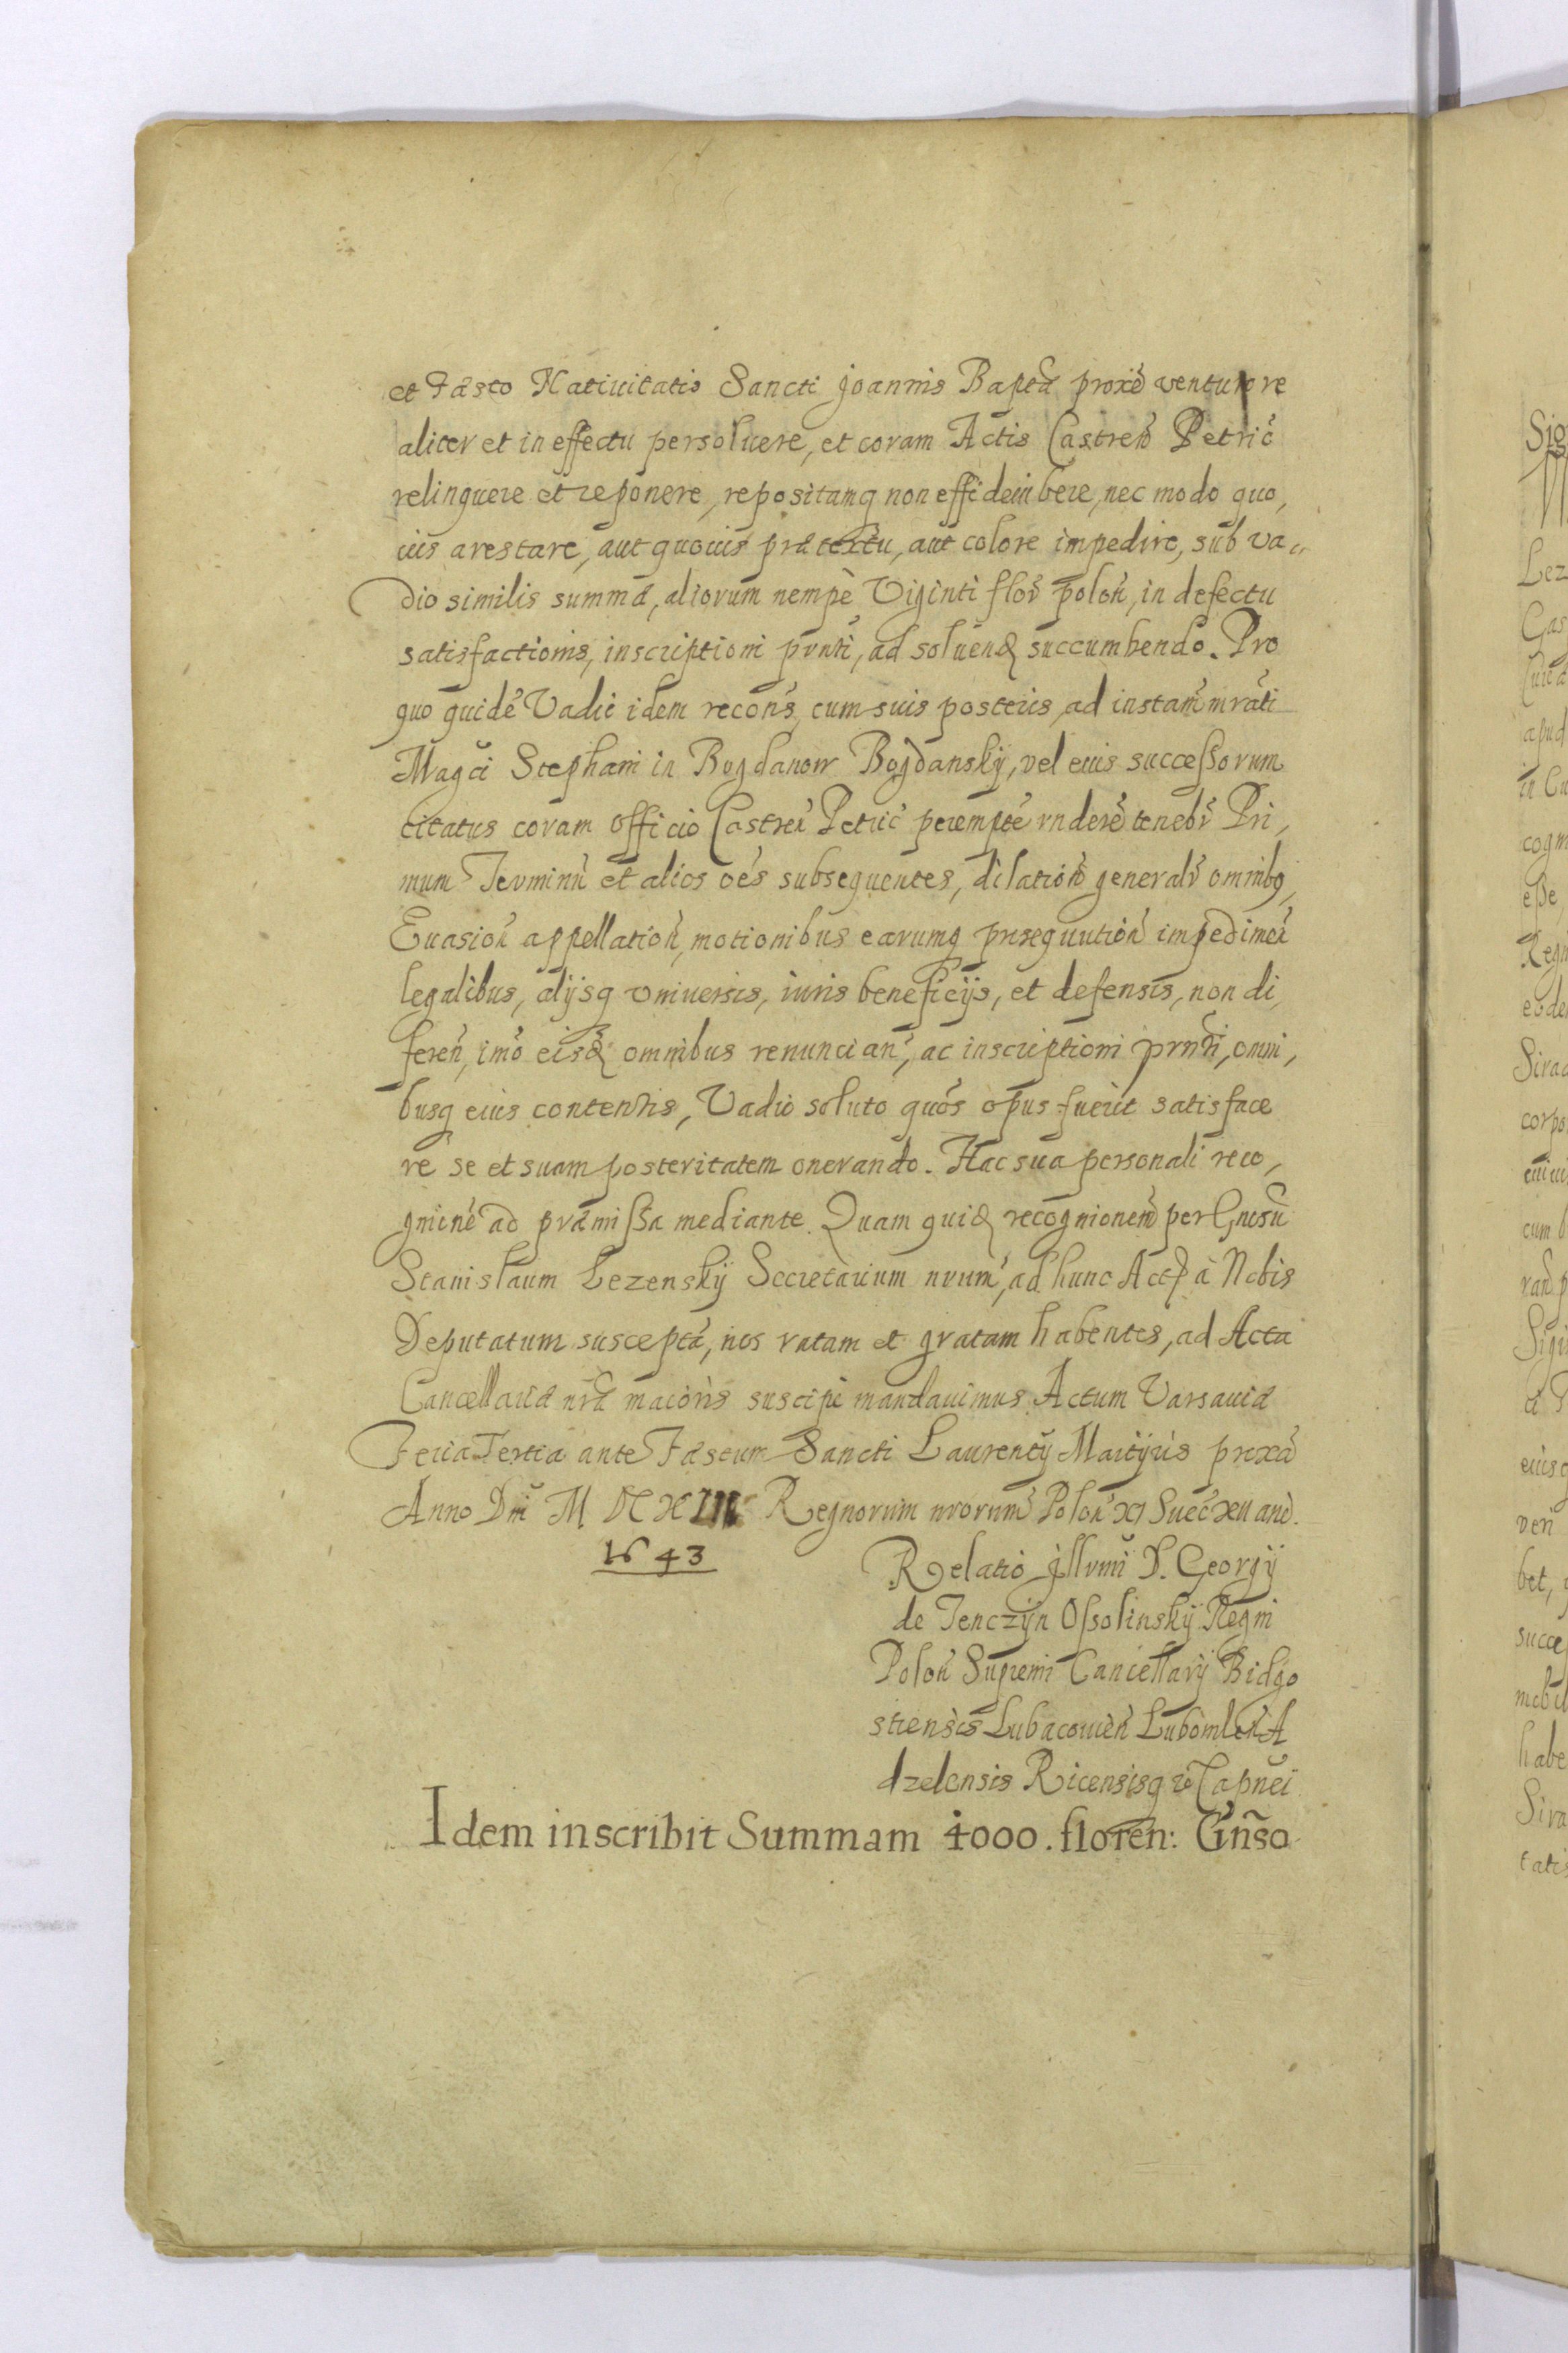 et Fæsto Natiuitatis Sancti Joannis Baptæ proxe venturo re
aliter et in effectu persoluere, et coram Actis Castren Petric
relinquere et reponere, repositamq non effi dein bere, nec modo quo,
uis arestare, aut quouis prætextu, aut colore impedire, sub va„
dio similis summæ, aliorum nempè Viginti flor polon, in defectu
satisfactionis, inscriptioni prnti, ad soluend succumbendo. Pro
quo quidē Vadio idem recons, cum suis posteris, ad instam mrati
Magci Stephani in Bogdanow Bogdanskÿ, vel eius successorum
citatus coram officio Castren Petric perempte rndere tenebr Pri,
mum Terminū et alios oēs subsequentes, dilation generalr omnibq,
Euasion appellation, motionibus earumq prosequution impedimen
legalibus, alijsq vniuersis, iuris beneficijs, et defensis, non di,
feren, imo eisd omnibus renuncian, ac inscriptioni prnti, omni,
busq eius contentis, Vadio soluto quos opus fuerit satisface
re se et suam posteritatem onerando. Hac sua personali reco,
gnicne ad præmissa mediante. Quam quid recognionem per Gnosū
Stanislaum Lezenskÿ Secretarium nrum, ad hunc Act à Nobis
Deputatum susceptā, nos ratam et gratam habentes, ad Acta
Cancellariæ nræ maioris suscipi mandauimus. Actum Varsauiæ
Feria Tertia ante Fæstum Sancti Laurentÿ Martÿris proxa
Anno Dni M DC XLIII Regnorum nrorum Polon XI Suec XII and.
1643
Relatio Jllrmi D. Georgÿ
de Tenczÿn Ossolinskÿ Regni
Polon Supremi Cancellarÿ Bidgo
stiensis Lubacouien Lubomlen A
dzelensis Ricensisq Capnei
Idem inscribit Summam 4000. floren: Gn̄so